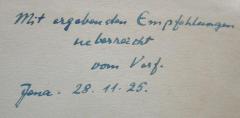 Mit ergebenden Empfehlungen
ueberreicht
vom Verf.
Jena. 28. 11. 25.